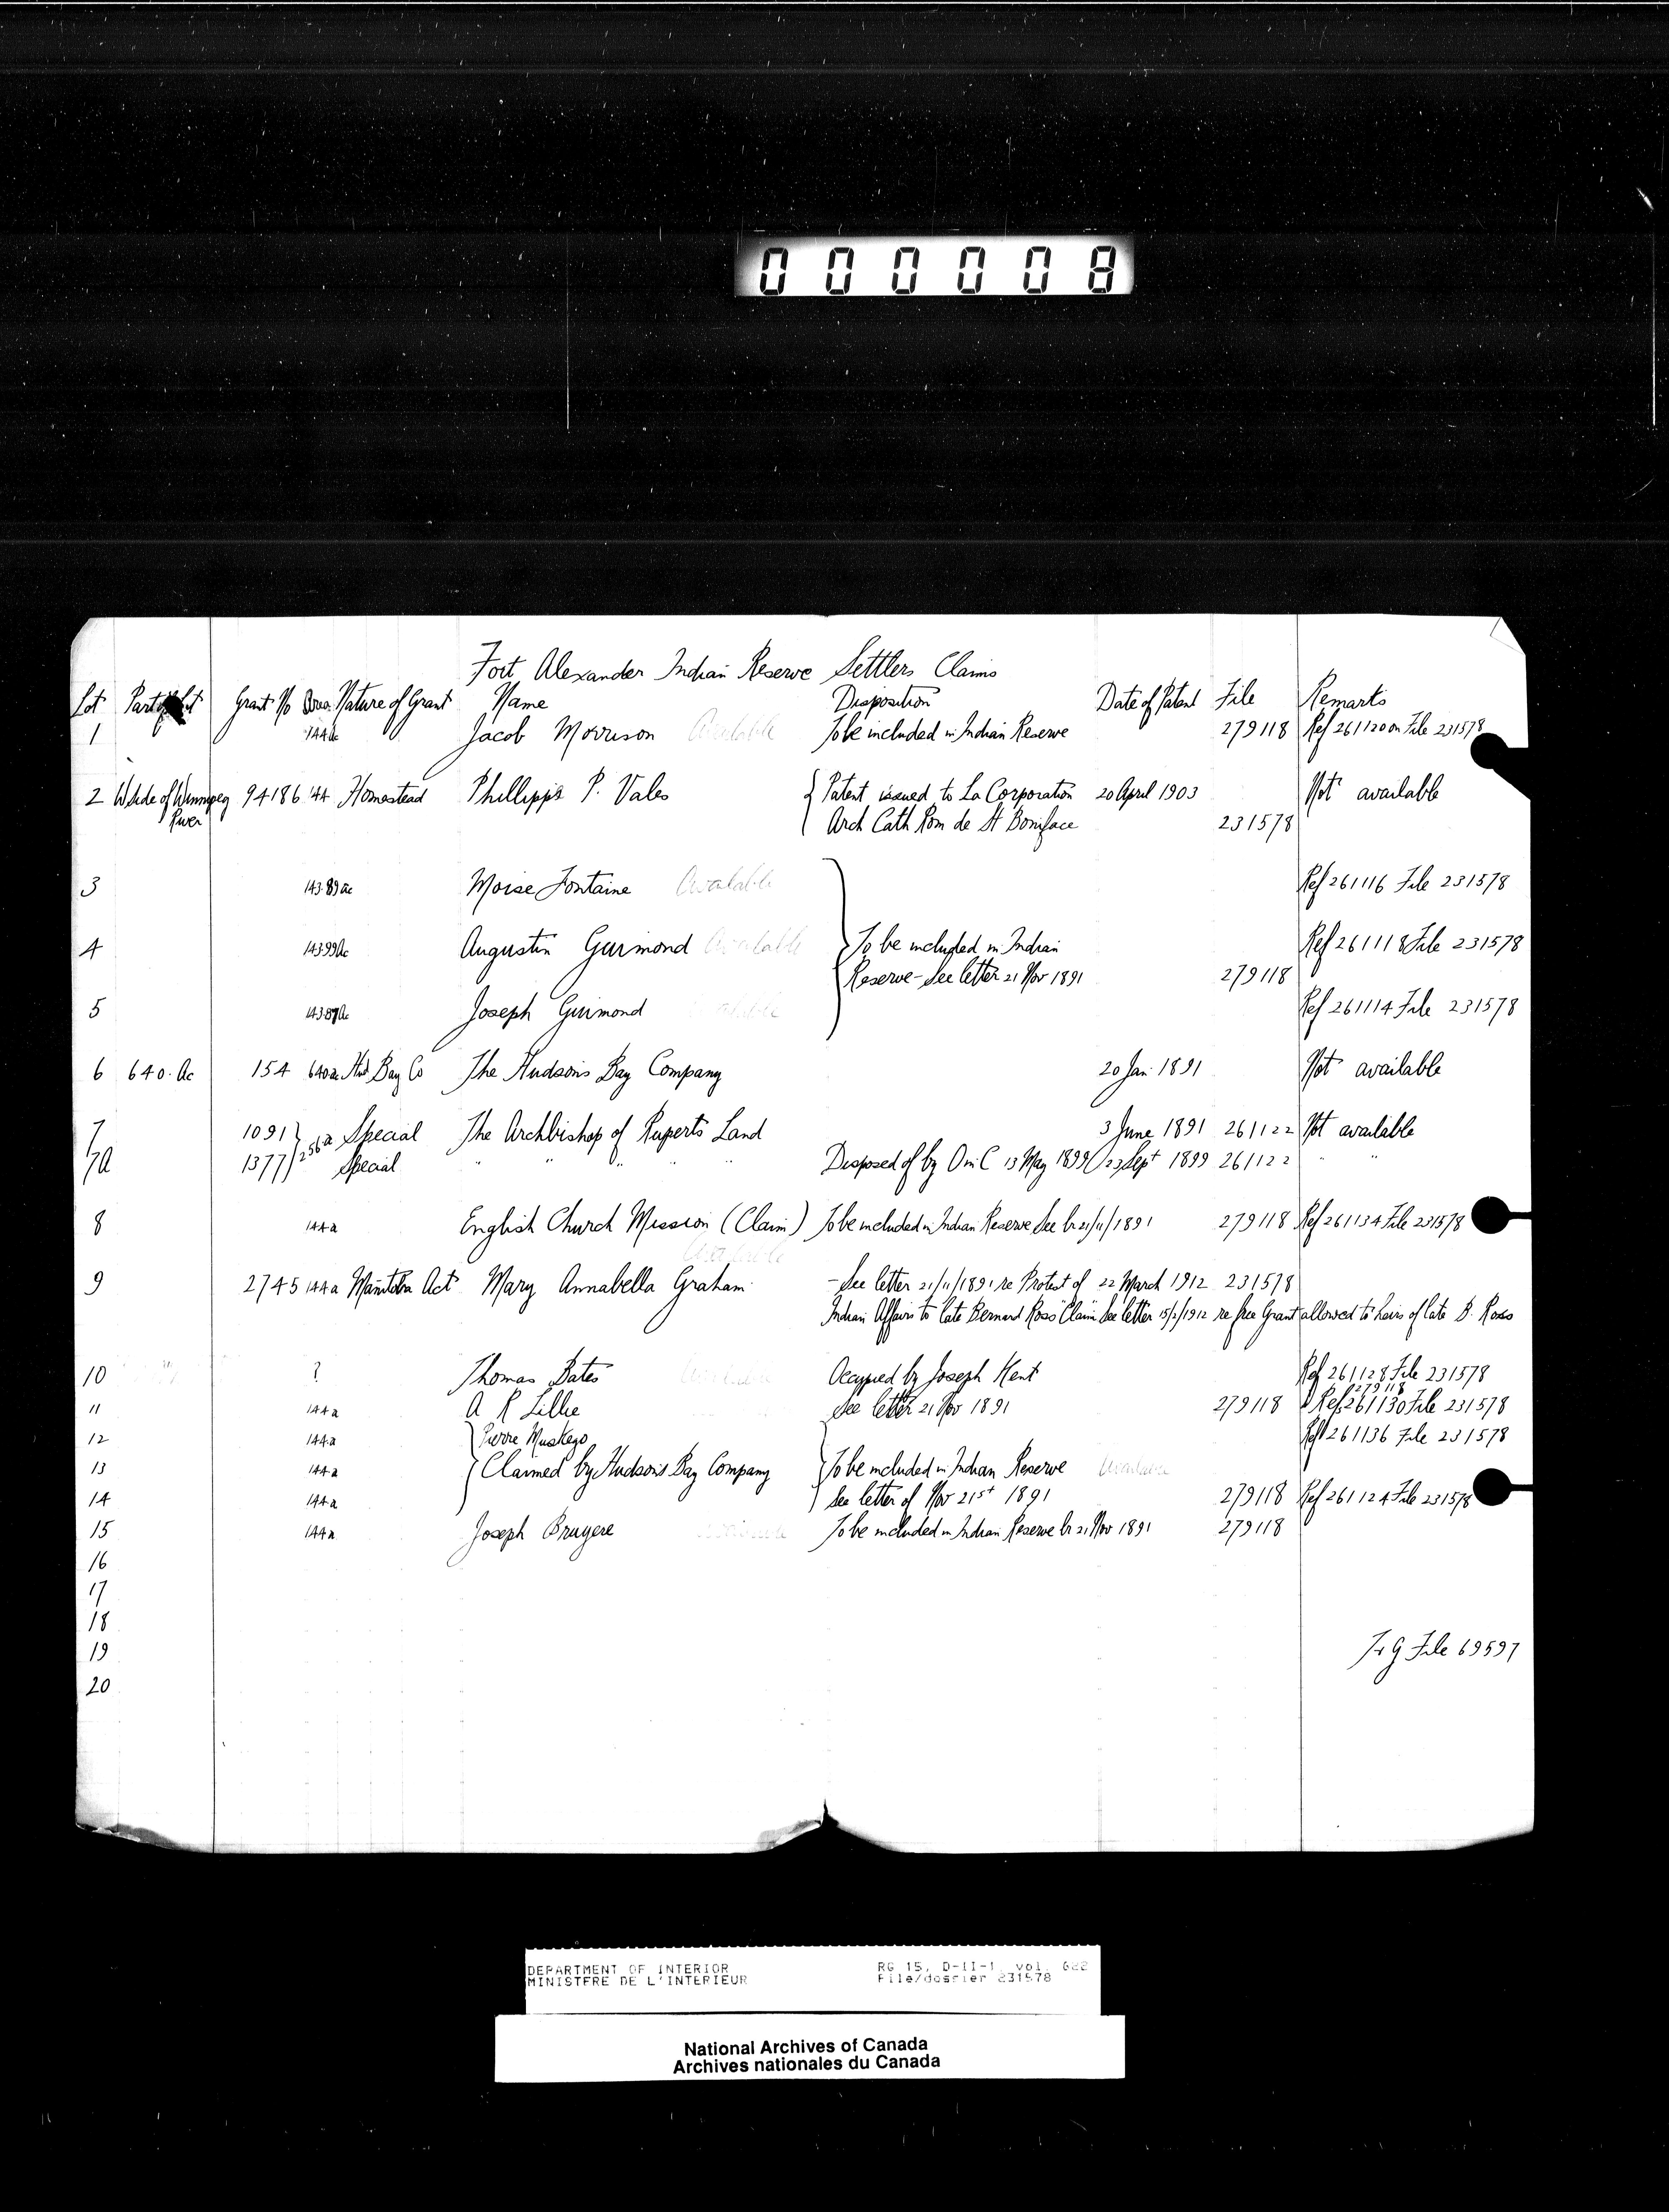 000008
Fort Alexander Indian Reserve Settlers Claims
Lot Part of Lot Grant No Area Nature of Grant Name Disposition Date of Patent File Remarks
1 144 Ac Jacob Morrison Available To be included in Indian Reserve 279118 Ref 261120 on File 231578
2 W side of Winnipeg 94186 144 Homestead Phillippe P. Vales { Patent issued to La Corporation 20 April 1903 Not available
River Arch Cath Rom de St Boniface 231578
3 143.89 ac Moise Fontaine Available Ref 261116 File 231578
4 143.99 Ac Augustin Guimond Available To be included in Indian Ref 261118 File 231578
Reserve - See letter 21 Nov 1891 279118
5 143.87 Ac Joseph Guimond Available Ref 261114 File 231578
6 640. Ac 154 640 ac Hud Bay Co The Hudsons Bay Company 20 Jan. 1891 Not available
7 1091 } 256 a Special The Archbishop of Ruperts Land 3 June 1891 261122 Not available
7a 1377 } Special " " " " Disposed of by O in C 13 May 1899 23 Sept 1899 261122 " "
8 144 a English Church Mission (Claim) To be included in Indian Reserve See lr 21/11/1891 279118 Ref 261134 File 231578
Available
9 2745 144 a Manitoba Act Mary Annabella Graham - See letter 21/11/1891 re Protest of 22 March 1912 231578
Indian Affairs to late Bernard Ross Claim See letter 15/2/1912 re free Grant allowed to heirs of late B. Ross
10 ? Thomas Bates Available Occupied by Joseph Kent Ref 261128 File 231578
279118
11 144 a A R Lillie See letter 21 Nov 1891 279118 Ref 261130 File 231578
12 144 a Pierre Muskego Ref 261136 File 231578
13 144 a Claimed by Hudsons Bay Company To be included in Indian Reserve Available
14 144 a See letter of Nov 21st 1891 279118 Ref 261124 File 231578
15 144 a Joseph Bruyere Available To be included in Indian Reserve lr 21 Nov 1891 279118
16
17
18
19 File 69597
20
DEPARTMENT OF INTERIOR RG 15, D-II-1, vol. 622
MINISTERE DE L'INTERIEUR File/dossier 231578
National Archives of Canada
Archives nationales du Canada